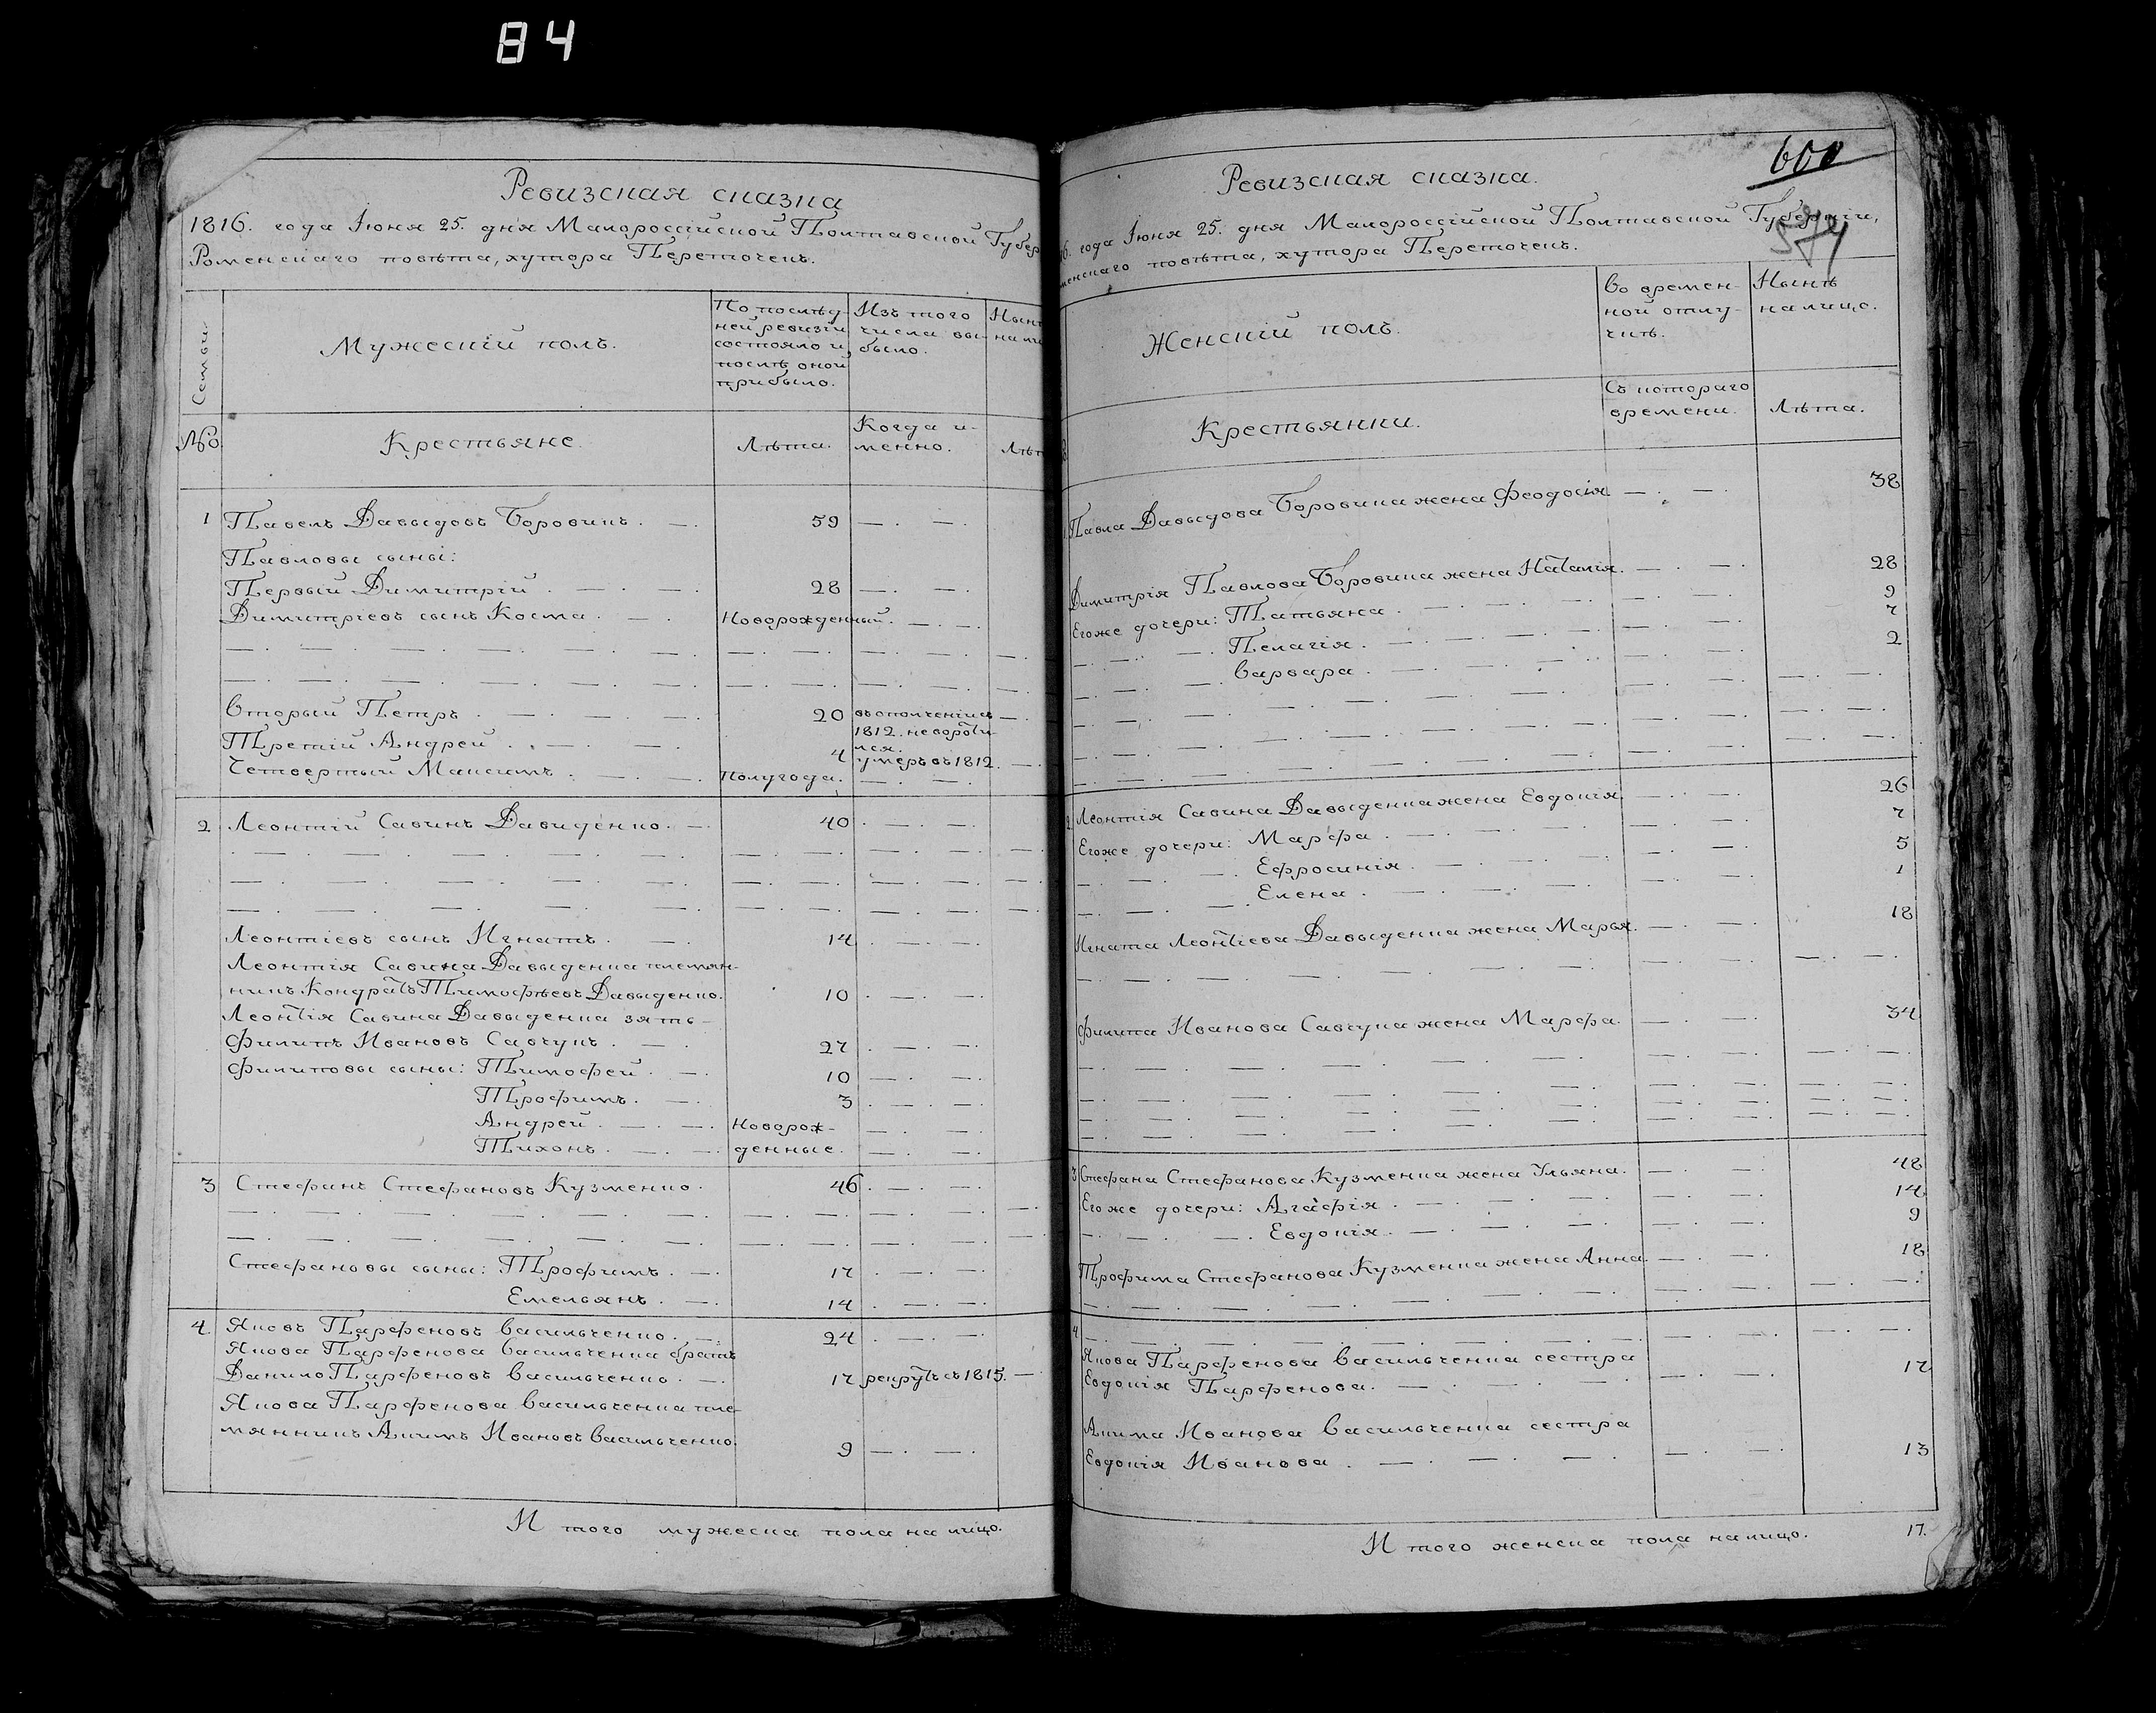 84
Ревизская сказка
1816. года Іюня 25. дня Малороссійской Полтавской Губер
Роменскаго повѣта, хутора Переточекъ.
Семьи
Мужескій полъ.
По послѣд-
ней ревизіи
состояло и
послѣ оной
прибыло.
Изъ того
числа вы-
было.
Нын
на ли
№
Крестьяне.
Лѣта.
Когда и-
менно.
Лѣт
1 Павелъ Давыдовъ Боровикъ. 59
Павловы сыны:
Первый Димитрій. 28
Димитріевъ сынъ Косма. Новорожденный.
Вторый Петръ. 20 въ ополченіи съ
1812. не вороти-
лся.
Третій Андрей. 4 умеръ въ 1812.
Четвертый Максимъ. полугода.
2 Леонтій Савинъ Давиденко. 40
Леонтіевъ сынъ Игнатъ. 14
Леонтія Савина Давыденка племян-
никъ Кондратъ Тимофѣевъ Давыденко. 10
Леонтія Савина Давыденка зять
Филипъ Ивановъ Савчукъ. 27
Филиповы сыны: Тимофей. 10
Трофимъ. 3
Андрей. Новорож-
Тихонъ. денные.
3 Стефанъ Стефановъ Кузменко. 46
Стефановы сыны: Трофимъ. 17
Емельянъ. 14
4. Яковъ Парфеновъ Васильченко. 24
Якова Парфенова Васильченка братъ
Данило Парфеновъ Васильченко. 17 рекрутъ съ 1815.
Якова Парфенова Васильченка пле-
мянникъ Акимъ Ивановъ Васильченко. 9
И того мужеска пола на лицо.
600
Ревизская сказка.
16. года Іюня 25. дня Малороссійской Полтавской Губерніи,
менскаго повѣта, хутора Переточекъ.
Женскій полъ.
Во времен-
ной отлу-
чкѣ.
Нынѣ
на лицо.
Крестьянки.
Съ котораго
времени.
Лѣта.
Павла Давыдова Боровика жена Феодосія 38
Димитрія Павлова Боровика жена Наталія. 28
Егоже дочери: Татьяна. 9
Пелагія. 7
Варвара. 2
2 Леонтія Савина Давыденка жена Евдокія 26
Егоже дочери: Марфа. 7
Ефросинія. 5
Елена. 1
Игната Леонтіева Давыденка жена Марья. 18
Филипа Иванова Савчука жена Марфа. 34
3 Стефана Стефанова Кузменка жена Ульяна. 48
Егоже дочери: Агафія. 14
Евдокія. 9
Трофима Стефанова Кузменка жена Анна. 18
4
Якова Парфенова Васильченка сестра
Евдокія Парфенова. 17
Акима Иванова Васильченка сестра
Евдокія Иванова. 13
И того женска пола на лицо. 17.